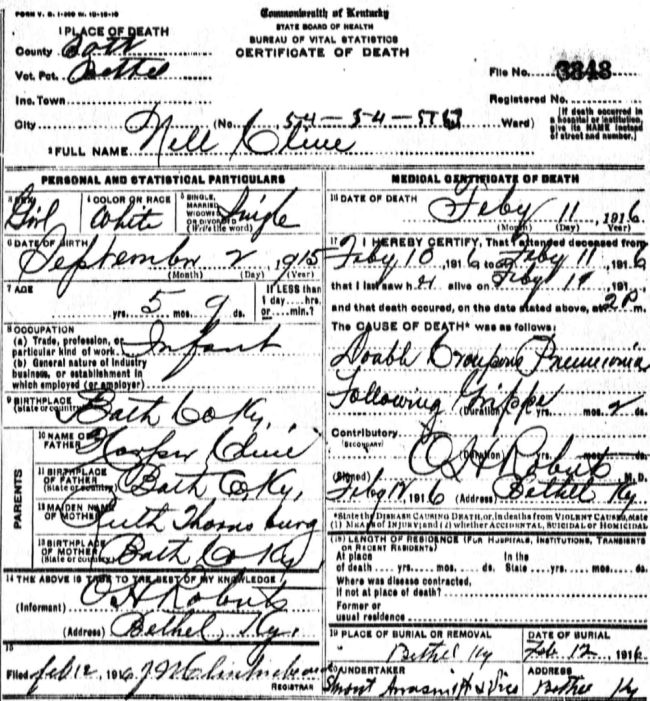 FORM V. S. 1-
Commonwealth of Kentucky
STATE BOARD OF HEALTH
BUREAU OF VITAL STATISTICS
CERTIFICATE OF DEATH
1 PLACE OF DEATH
County Bath
Vot. Pct. Bethel
Inc. Town
City
(No. 54-54- Ward)
File No. 3848
Registered No.
[If death occurred in a hospital or institution, give its NAME instead of street and number.]
2 FULL NAME Nell Kline
PERSONAL AND STATISTICAL PARTICULARS
3 SEX Girl
4 COLOR OR RACE White
5 SINGLE, MARRIED, WIDOWED OR DIVORCED (Write the word) Single
6 DATE OF BIRTH September 2, 1915
(Month) (Day) (Year)
7 AGE
yrs. 5 mos. 9 ds.
If LESS than 1 day...hrs. or...min.?
8 OCCUPATION
(a) Trade, profession, or particular kind of work Infant
(b) General nature of industry business, or establishment in which employed (or employer)
9 BIRTHPLACE (State or country) Bath Co Ky.
PARENTS
10 NAME OF FATHER Harper Kline
11 BIRTHPLACE OF FATHER (State or country) Bath Co Ky.
12 MAIDEN NAME OF MOTHER Ruth Thornsburg
13 BIRTHPLACE OF MOTHER (State or country) Bath Co Ky
14 THE ABOVE IS TRUE TO THE BEST OF MY KNOWLEDGE
(Informant) O H Roberts
(Address) Bethel Ky.
15
Filed Feb 12, 1916
REGISTRAR
MEDICAL CERTIFICATE OF DEATH
16 DATE OF DEATH Feby 11, 1916
(Month) (Day) (Year)
17 I HEREBY CERTIFY, That I attended deceased from
Feby 10 1916 to Feby 11 1916
that I last saw her alive on Feby 191
and that death occured, on the date stated above, at 2 P m.
The CAUSE OF DEATH* was as follows:
Double Croupous Pneumonia
Following Grippe
(Duration) yrs. mos. 2 ds.
Contributory
(SECONDARY)
(Duration) yrs. mos. ds.
(Signed) O H Roberts M. D.
Feby 1916 (Address) Bethel Ky
*State the DISEASE CAUSING DEATH, or, in deaths from VIOLENT CAUSES, state
(1) MEANS OF INJURY; and (2) whether ACCIDENTAL, SUICIDAL or HOMICIDAL
(18) LENGTH OF RESIDENCE (FOR HOSPITALS, INSTITUTIONS, TRANSIENTS OR RECENT RESIDENTS)
At place of death yrs. mos. ds.
In the State yrs. mos. ds.
Where was disease contracted, if not at place of death?
Former or usual residence
19 PLACE OF BURIAL OR REMOVAL
Bethel Ky
DATE OF BURIAL
Feb. 12 1916
20 UNDERTAKER
ADDRESS
Bethel Ky